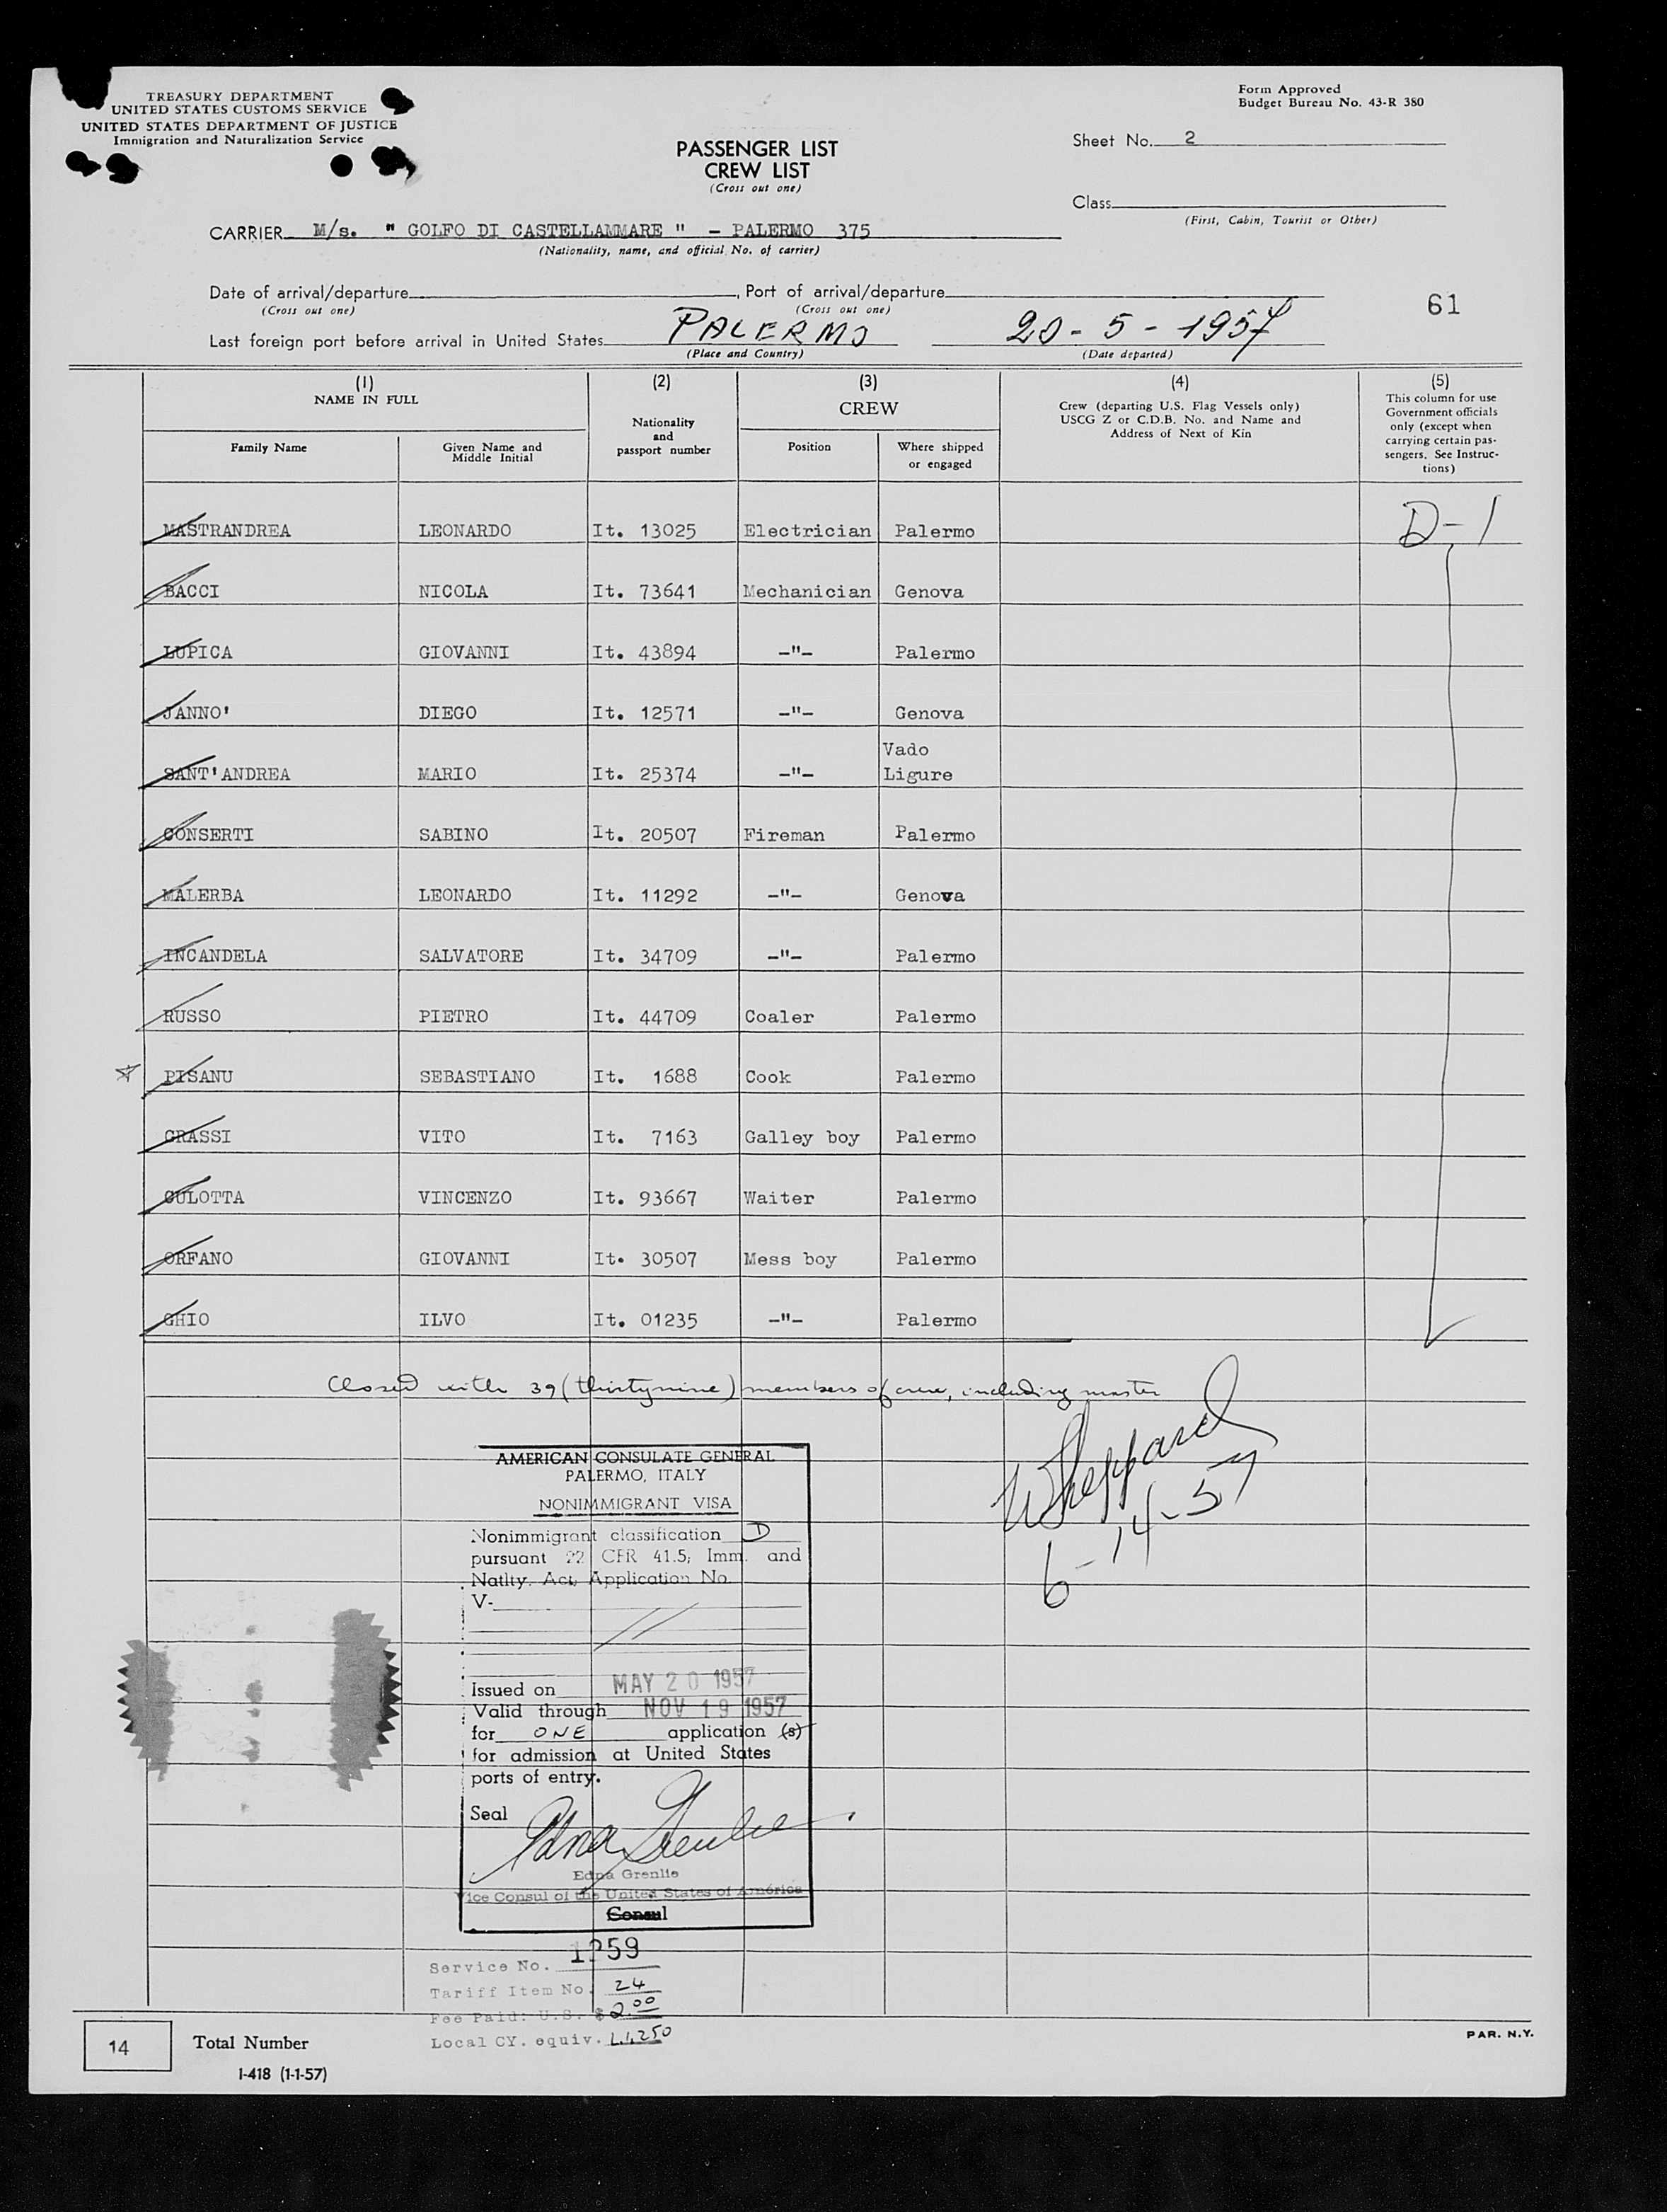 TREASURY DEPARTMENT
UNITED STATES CUSTOMS SERVICE
UNITED STATES DEPARTMENT OF JUSTICE
Immigration and Naturalization Service
Form Approved
Budget Bureau No. 43-R 380
PASSENGER LIST
CREW LIST
(Cross out one)
Sheet No. 2
Class
(First, Cabin, Tourist or Other)
CARRIER M/s. " GOLFO DI CASTELLAMMARE " - PALERMO 375
(Nationality, name, and official No. of carrier)
Date of arrival/departure , Port of arrival/departure
(Cross out one) (Cross out one)
61
Last foreign port before arrival in United States PALERMO 20-5-1957
(Place and Country) (Date departed)
(1) (2) (3) (4) (5)
NAME IN FULL
Family Name
Given Name and
Middle Initial
Nationality
and
passport number
CREW
Position
Where shipped
or engaged
Crew (departing U.S. Flag Vessels only)
USCG Z or C.D.B. No. and Name and
Address of Next of Kin
This column for use
Government officials
only (except when
carrying certain pas-
sengers. See Instruc-
tions)
MASTRANDREA LEONARDO It. 13025 Electrician Palermo D-1
BACCI NICOLA It. 73641 Mechanician Genova
LUPICA GIOVANNI It. 43894 -"- Palermo
JANNO' DIEGO It. 12571 -"- Genova
Vado
SANT'ANDREA MARIO It. 25374 -"- Ligure
CONSERTI SABINO It. 20507 Fireman Palermo
MALERBA LEONARDO It. 11292 -"- Genova
INCANDELA SALVATORE It. 34709 -"- Palermo
RUSSO PIETRO It. 44709 Coaler Palermo
PISANU SEBASTIANO It. 1688 Cook Palermo
GRASSI VITO It. 7163 Galley boy Palermo
CULOTTA VINCENZO It. 93667 Waiter Palermo
ORFANO GIOVANNI It. 30507 Mess boy Palermo
GHIO ILVO It. 01235 -"- Palermo
Closed with 39 (thirtynine) members of crew, including master
WSheppard
6-14-57
AMERICAN CONSULATE GENERAL
PALERMO, ITALY
NONIMMIGRANT VISA
Nonimmigrant classification D
pursuant 22 CFR 41.5; Imm. and
Natlty. Act; Application No.
V-
Issued on MAY 20 1957
Valid through NOV 19 1957
for ONE application (s)
for admission at United States
ports of entry.
Seal
Edna Grenlie
Edna Grenlie
Vice Consul of the United States of América
Consul
Service No. 1259
Tariff Item No. 24
Fee Paid: U.S. $ 2.00
Local CY. equiv. L.1,250
14 Total Number
I-418 (1-1-57)
PAR. N.Y.